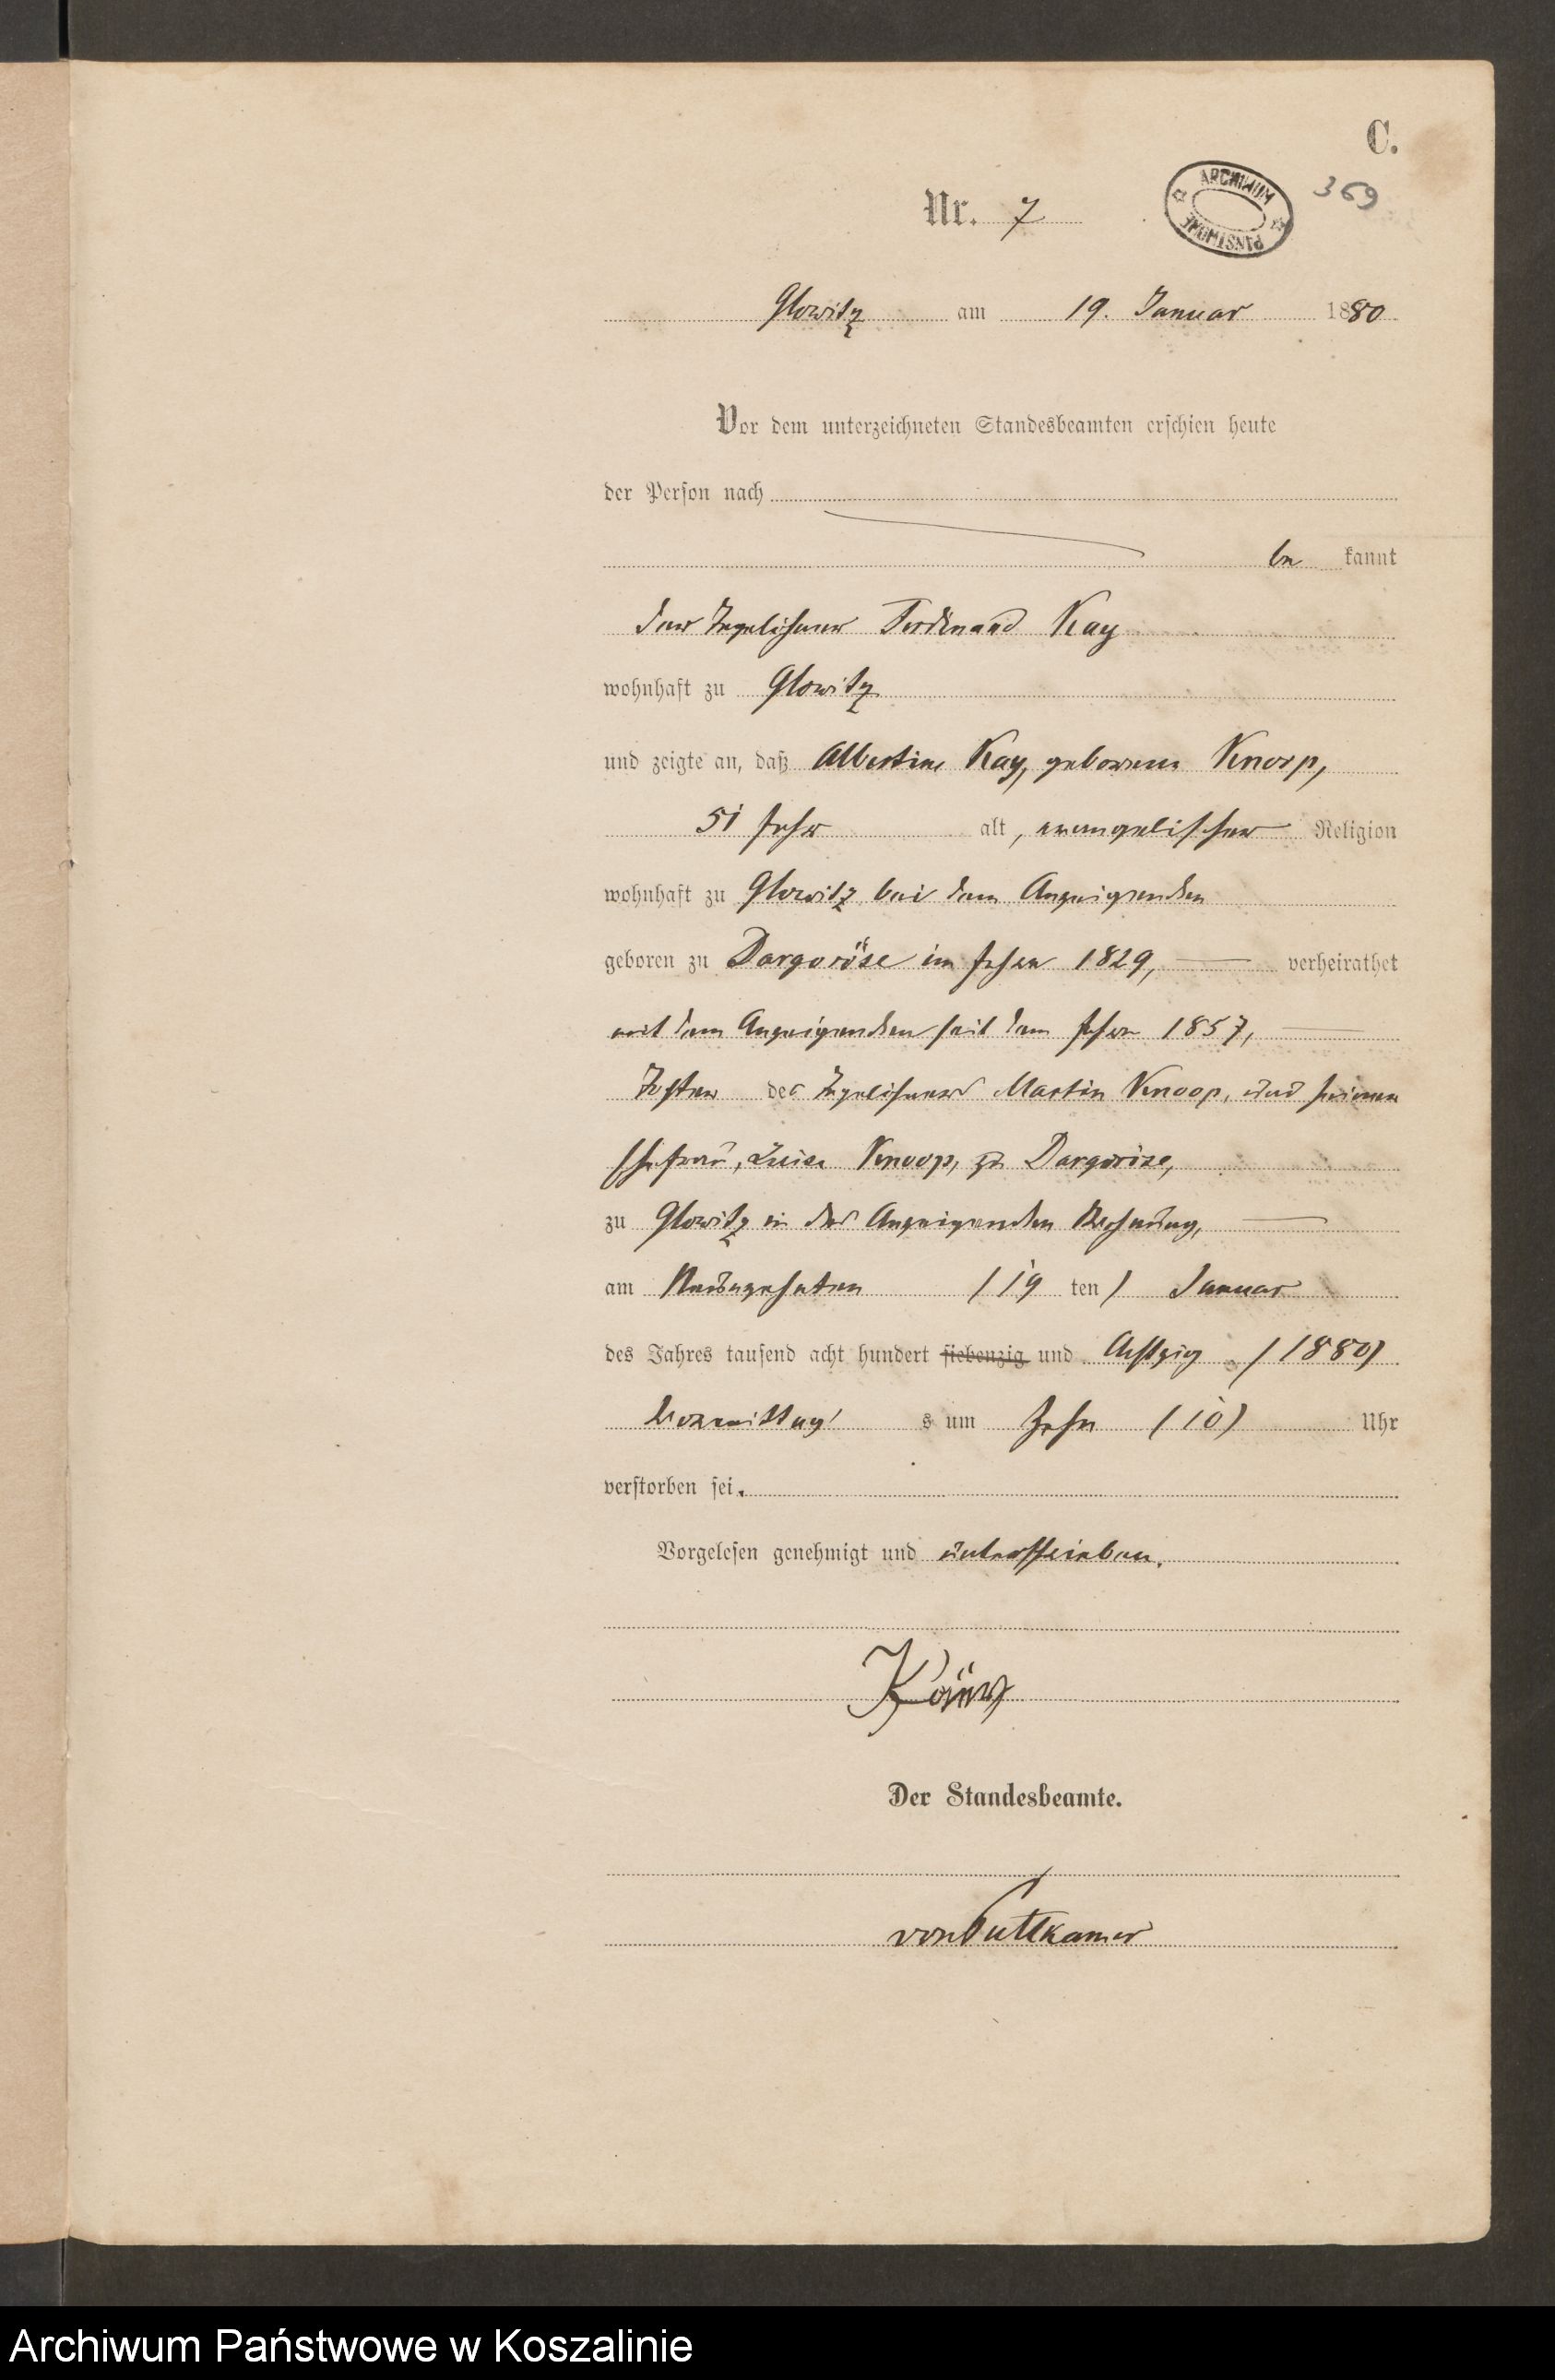 C.
Nr. 7
ARCHIWUM PAŃSTWOWE
369
Glowitz am 19. Januar 1880
Vor dem unterzeichneten Standesbeamten erschien heute
der Person nach
be kannt
der Tagelöhner Ferdinand Kay
wohnhaft zu Glowitz
und zeigte an, daß Albertine Kay, geborene Knoop,
51 Jahr alt, evangelischer Religion
wohnhaft zu Glowitz bei dem Anzeigenden
geboren zu Dargoröse im Jahre 1829, verheirathet
mit dem Anzeigenden seit dem Jahre 1857,
Tochter des Tagelöhners Martin Knoop, und seiner
Ehefrau, Luise Knoop, zu Dargoröse,
zu Glowitz in des Anzeigenden Wohnung,
am Neunzehnten /19 ten/ Januar
des Jahres tausend acht hundert siebenzig und Achtzig /1880/
Vormittag s um Zehn (10) Uhr
verstorben sei.
Vorgelesen genehmigt und unterschrieben.
Der Standesbeamte.
von Puttkamer
Archiwum Państwowe w Koszalinie